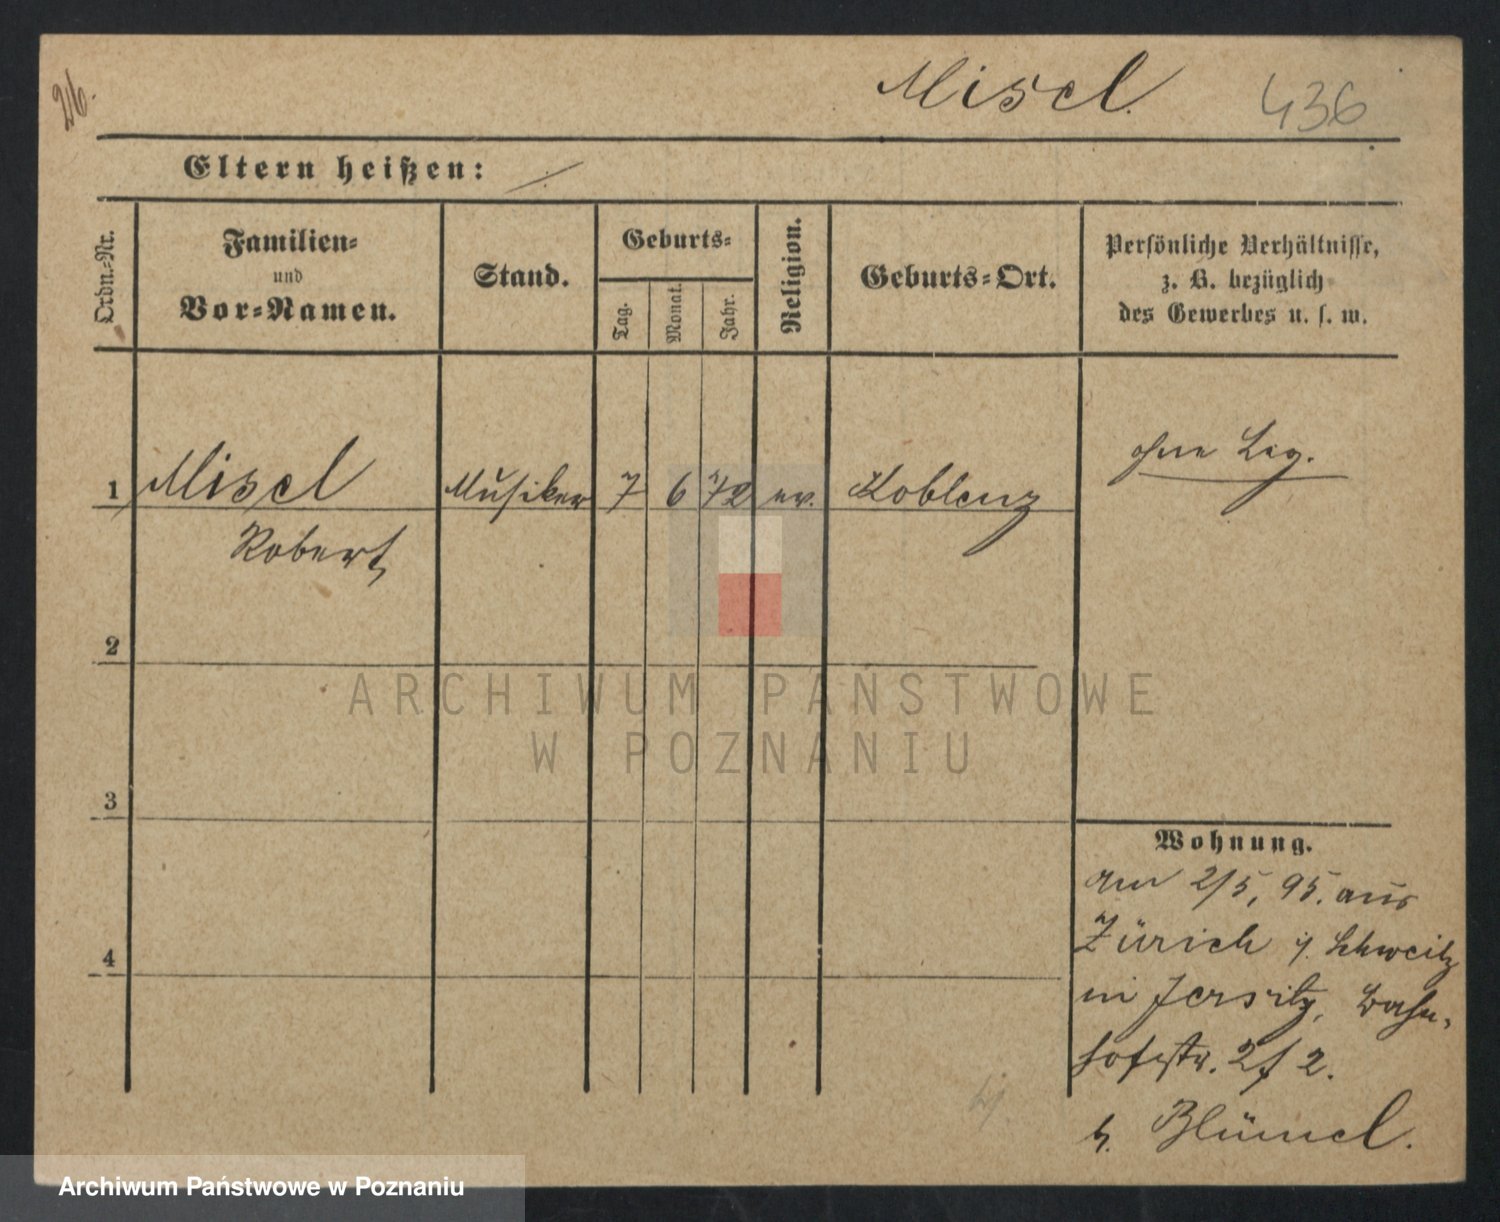 26.
Misel
436
Eltern heißen:
Ordn.=Nr.
Familien=
und
Vor=Namen.
Stand.
Geburts=
Tag.
Monat.
Jahr.
Religion.
Geburts=Ort.
Persönliche Verhältnisse,
z. B. bezüglich
des Gewerbes u. s. w.
1 Misel Musiker 7 6 72 ev. Koblenz
Robert
ohne Leg.
2
3
4
Wohnung.
am 2/5, 95. aus
Zürich i. Schweitz
in Jersitz, Bahn-
hofstr. 2 2.
b. Blümel.
ARCHIWUM PAŃSTWOWE
W POZNANIU
Archiwum Państwowe w Poznaniu